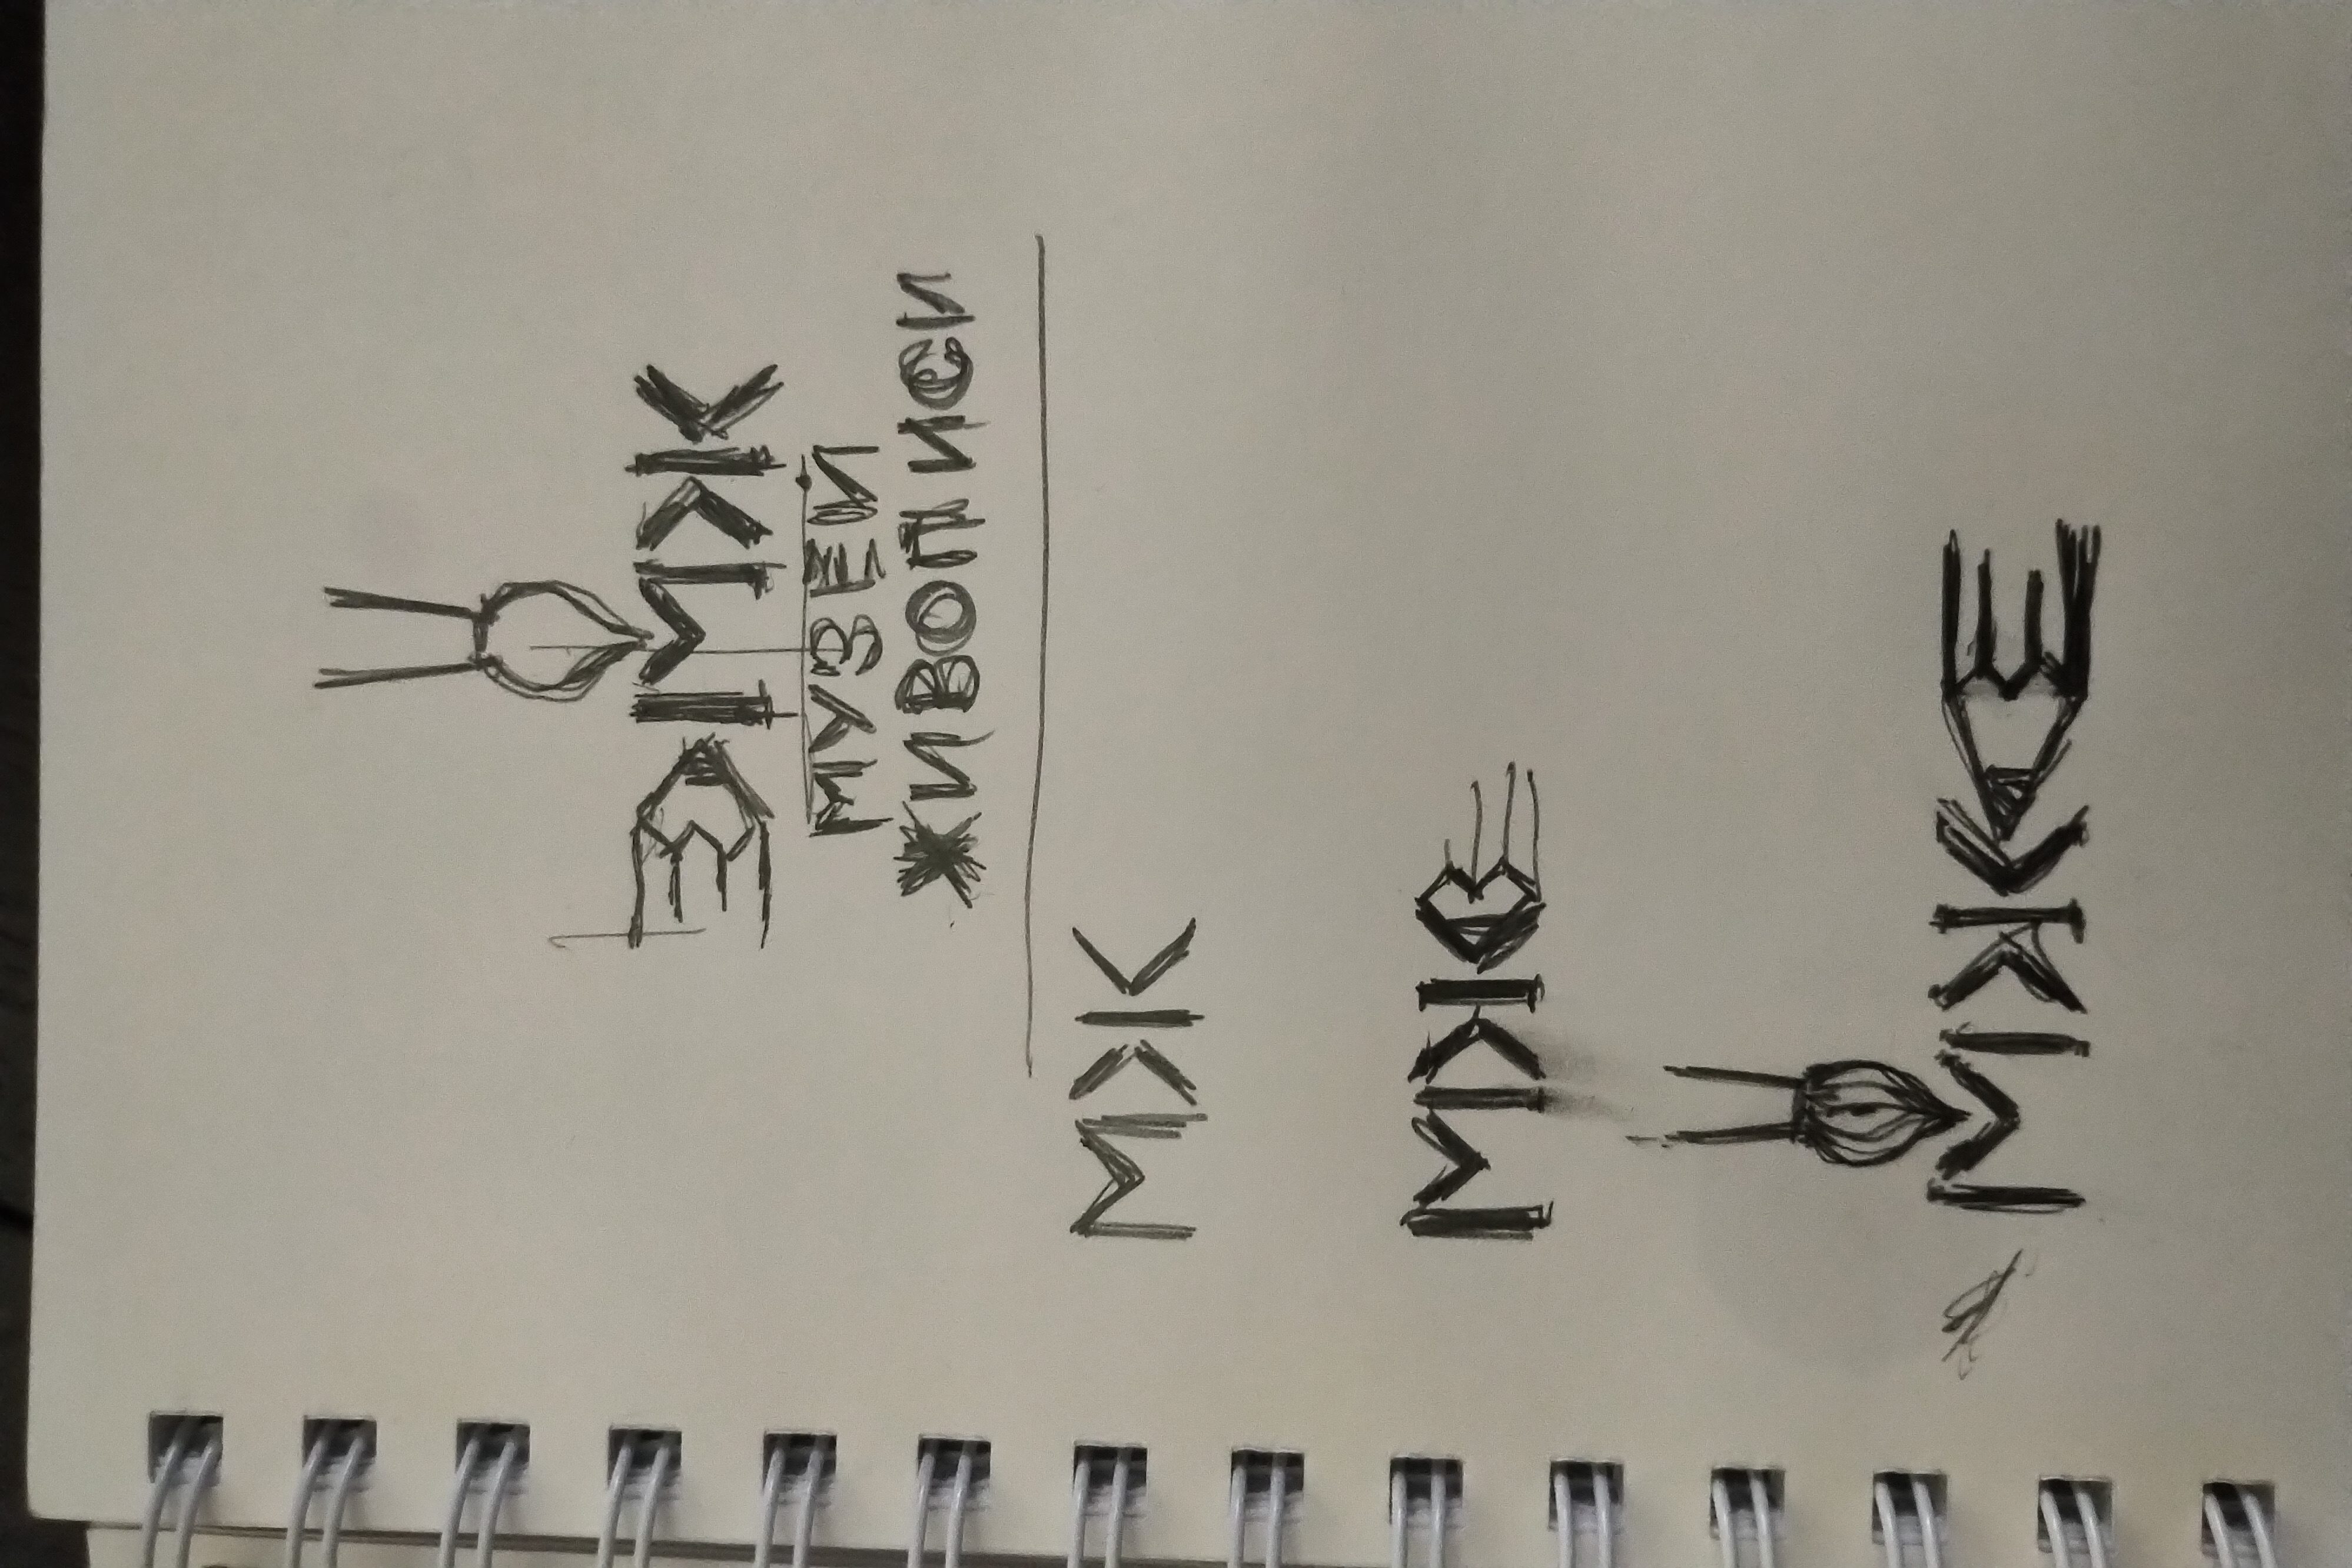 МЖ
МУЗЕЙ
ЖИВОПИСИ
МЖ
МЖ
МЖ